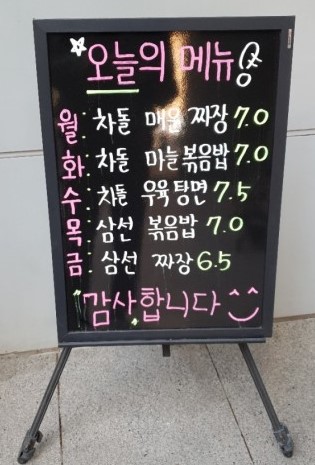 오늘의 메뉴
월: 차돌 매운 짜장 7.0
화: 차돌 마늘 볶음밥 7.0
수: 차돌 우육탕면 7.5
목: 삼선 볶음밥 7.0
금: 삼선 짜장 6.5
감사합니다 ^^